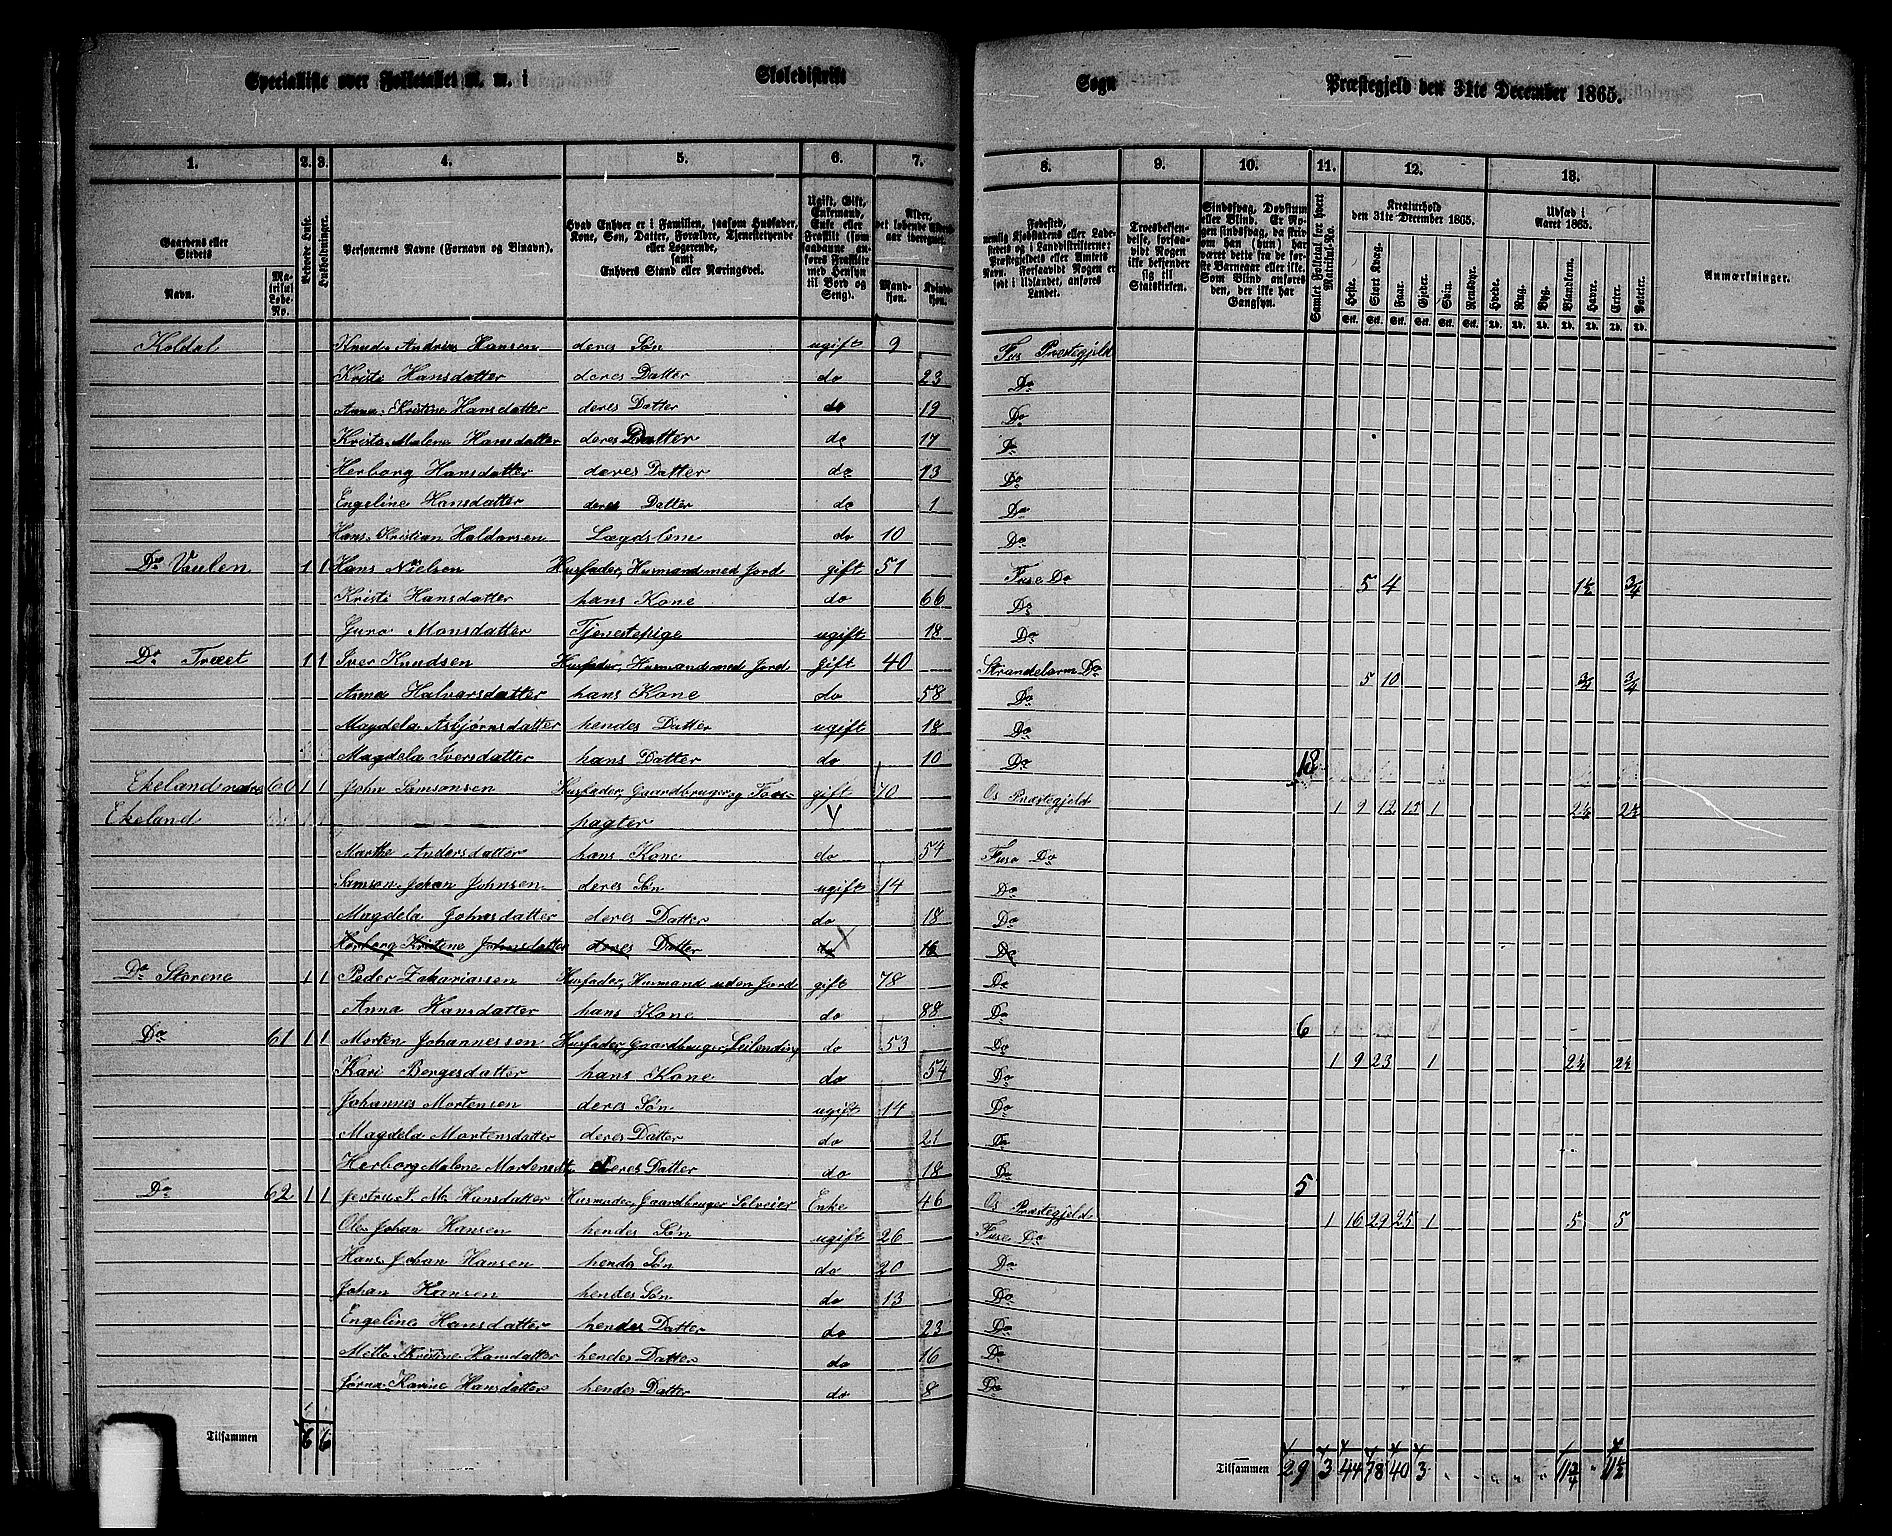 Specialliste over Folketallet m. m. i Skoledistrikt Sogn Præstegjeld den 31te December 1865.
1. 2. 3. 4. 5. 6. 7. 8. 9. 10. 11. 12. 13.
Gaardens eller Stedets Navn. Matrikul Løbe-No. Beboede Huse. Husholdninger.
Personernes Navne (Fornavn og Binavn).
Hvad Enhver er i Familien, saasom Husfader, Kone, Søn, Datter, Forældre, Tjenestetyende eller Logerende, samt Enhvers Stand eller Næringsvei.
Ugift, Gift, Enkemand, Enke eller Fraskilt (som saadanne anføres Fraskilte med Hensyn til Bord og Seng).
Alder, det løbende Alders-aar iberegnet. Mandkjøn. Kvindekjøn.
Fødested, nemlig Kjøbstadens eller Ladestedets og i Landdistrikterne Præstegjeldets eller Amtets Navn. Forsaavidt Nogen er født i Udlandet, anføres Landet.
Troesbekjendelse, forsaavidt Nogen ikke bekjender sig til Statskirken.
Sindssvag, Døvstum eller Blind. Er Nogen sindssvag, da skrives om han (hun) har været dette fra de første Barneaar eller ikke. Som Blind anføres den, der ikke har Gangsyn.
Samlet Folketal for hvert Matrikul-No.
Kreaturhold den 31te December 1865. Heste. Stort Kvæg. Faar. Gjeder. Svin. Rensdyr.
Udsæd i Aaret 1865. Hvede. Rug. Byg. Blandkorn. Havre. Erter. Poteter.
Anmærkninger.
Koldal Knud Andreas Hansen deres Søn ugift 9 Fus Præstegjeld
Kristi Hansdatter deres Datter do 23 Do
Anna Kristine Hansdatter deres Datter do 19 Do
Krista Malene Hansdatter deres Datter do 17 Do
Herborg Hansdatter deres Datter do 13 Do
Engeline Hansdatter deres Datter do 1 Do
Hans Kristian Haldorsen Lægdslem do 10 Do
Do Vaulen 1 1 Hans Nielsen Husfader, Husmand med Jord gift 51 Fuse Do 5 4 1½ ¾
Kristi Hansdatter hans Kone do 66 Do
Guro Monsdatter Tjenestepige ugift 18 Do
Do Træet 1 1 Iver Knudsen Husfader, Husmand med Jord gift 40 Strandebarm Do 5 10 ¾ ¾
Anna Halvorsdatter hans Kone do 58 Do
Magdela Asbjørnsdatter hendes Datter ugift 18 Do
Magdela Iversdatter hans Datter do 10 Do 18
Ekeland nedre 60 1 1 John Samsonsen Husfader, Gaardbruger og For- gift 70 Os Præstegjeld 1 9 12 15 1 2½ 2½
Ekeland pagter
Marthe Andersdatter hans Kone do 54 Fuse Do
Samson Johan Johnsen deres Søn ugift 14 Do
Magdela Johnsdatter deres Datter do 18 Do
Herborg Kristine Johnsdatter deres Datter do 16 Do
Do Storene 1 1 Peder Zakariassen Husfader, Husmand uden Jord gift 78 Do
Anna Hansdatter hans Kone do 88 Do 6
Do 61 1 1 Morten Johannessen Husfader, Gaardbruger, Leilending do 53 Do 1 9 23 1 2½ 2½
Kari Børgesdatter hans Kone do 54 Do
Johannes Mortensen deres Søn ugift 14 Do
Magdela Mortensdatter deres Datter do 21 Do
Herborg Malene Mortensdtr deres Datter do 18 Do 5
Do 62 1 1 M. Hansdatter Husmoder, Gaardbruger Selveier Enke 46 Os Præstegjeld 1 16 29 25 1 5 5
Ole Johan Hansen hendes Søn ugift 26 Fuse Do
Hans Johan Hansen hendes Søn do 20 Do
Johan Hansen hendes Søn do 13 Do
Engeline Hansdatter hendes Datter do 23 Do
Mette Kristine Hansdatter hendes Datter do 16 Do
Karine Hansdatter hendes Datter do 8 Do
Tilsammen 6 6 Tilsammen 29 3 44 78 40 3 11¾ 11½